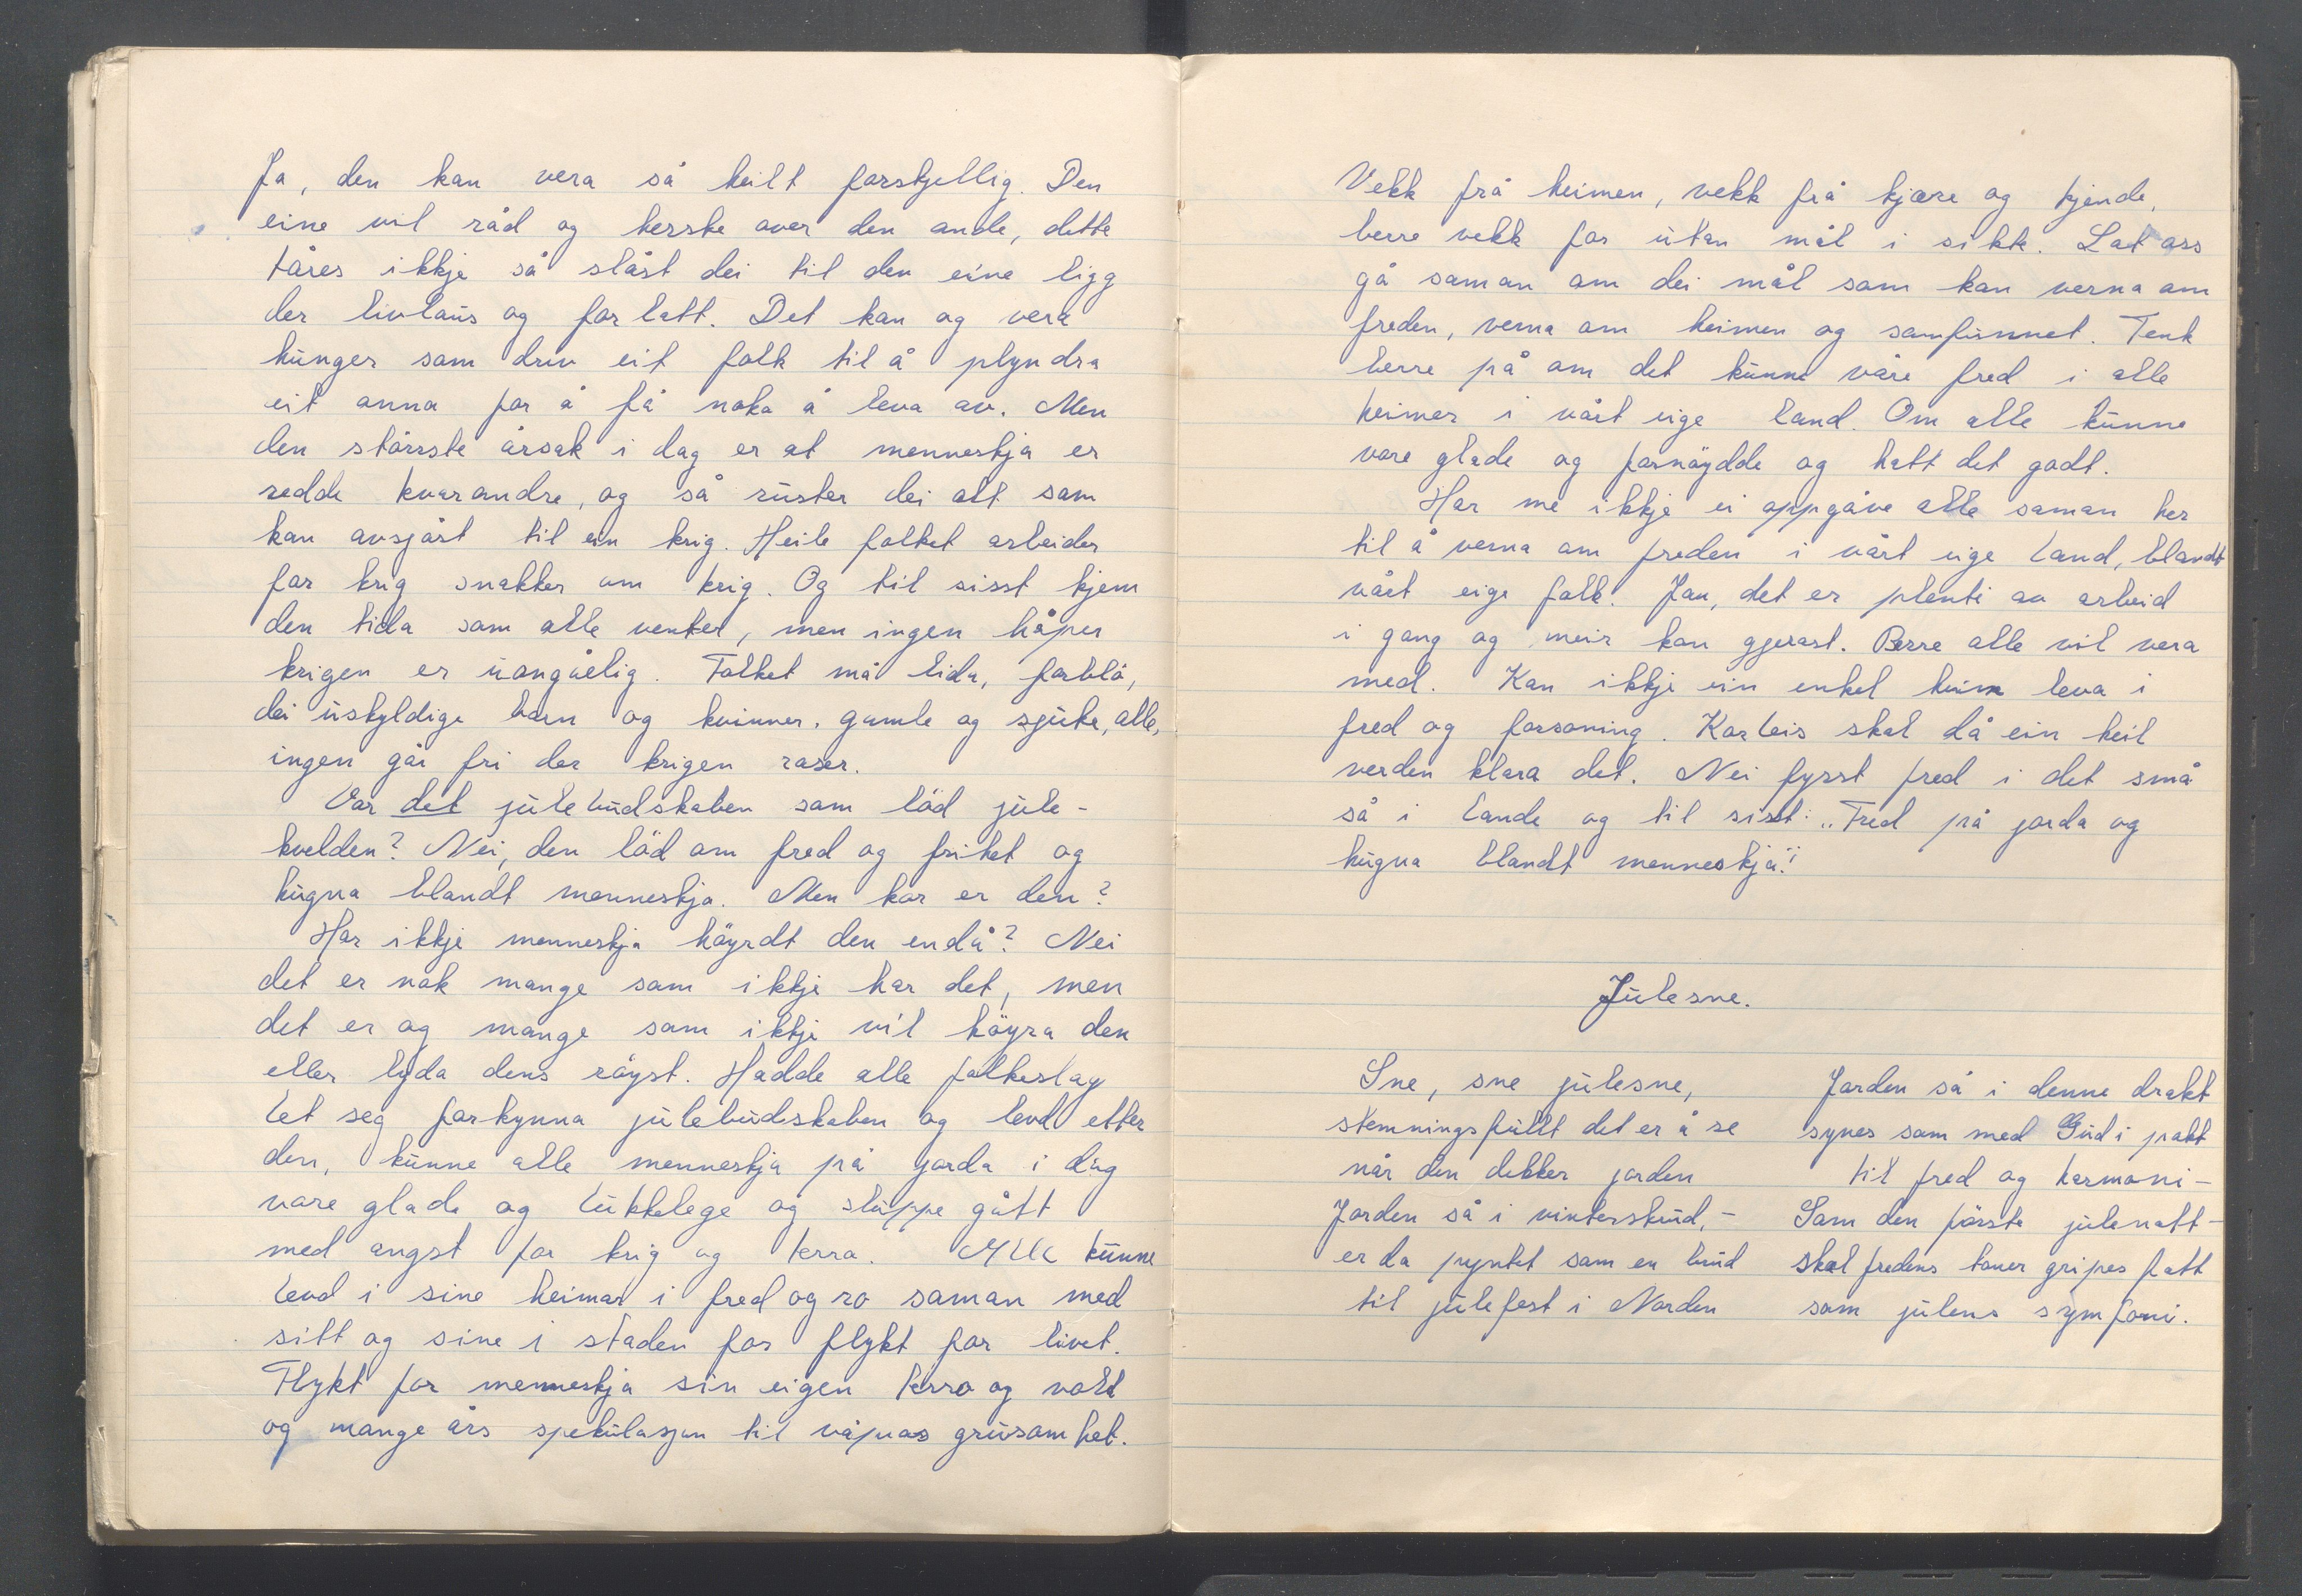 Ja, den kan vera så heilt forskjellig. Den
eine vil råd og herske over den andle, dette
tåres ikkje så slåst dei til den eine ligg
der livlaus og forlatt. Det kan og vera
hunger som driv eit folk til å plyndra
eit anna for å få noka å leva av. Men
den störrste årsak i dag er at menneskja er
redde kvarandre, og så ruster dei alt som
kan avsjåst til ein krig. Heile folket arbeider
for krig snakker om krig. Og til sisst kjem
den tida som alle venter, men ingen håper
krigen er uongåelig. Folket må lida, forblö,
dei uskyldige barn og kvinner. gamle og sjuke, alle,
ingen går fri der krigen raser.
Var det julebudskaben som löd jule-
kvelden? Nei, den löd om fred og frihet og
hugna blandt menneskja. Men kor er den?
Har ikkje menneskja höyrdt den endå? Nei
det er nok mange som ikkje har det, men
det er og mange som ikkje vil höyra den
eller lyda dens röyst. Hadde alle folkeslag
let seg forkynna julebudskaben og levd etter
den, kunne alle menneskja på jorda i dag
vare glade og lukkelege og sluppe gått
med angst for krig og terro. Alle kunne
levd i sine heimar i fred og ro saman med
sitt og sine i staden for flykt for livet.
Flykt for menneskja sin eigen terro og vold
og mange års spekulasjon til våpnas grusomhet.
Vekk frå heimen, vekk frå kjære og kjende,
berre vekk for utan mål i sikk. Lat oss
gå saman om dei mål som kan verna om
freden, verna om heimen og samfunnet. Tenk
berre på om det kunne våre fred i alle
heimer i vårt eige land. Om alle kunne
vare glade og fornöydde og hatt det godt.
Har me ikkje ei oppgåve alle saman her
til å verna om freden i vårt eige land, blandt
vårt eige folk. Jau, det er plenti av arbeid
i gang og meir kan gjerast. Berre alle vil vera
med. Kan ikkje ein enkel heim leva i
fred og forsoning. Korleis skal då ein heil
verden klara det. Nei fysst fred i det små
så i lande og til sisst: „Fred på jorda og
hugna blandt menneskja!"
Julesne.
Sne, sne julesne,
stemningsfullt det er å se
når den dekker jorden
Jorden så i vinterskud, -
er da pyntet som en brud
til julefest i Norden
Jorden så i denne drakt
synes som med Gud i pakt
til fred og harmoni -
Som den förste julenatt -
skal fredens toner gripes fatt
som julens symfoni.